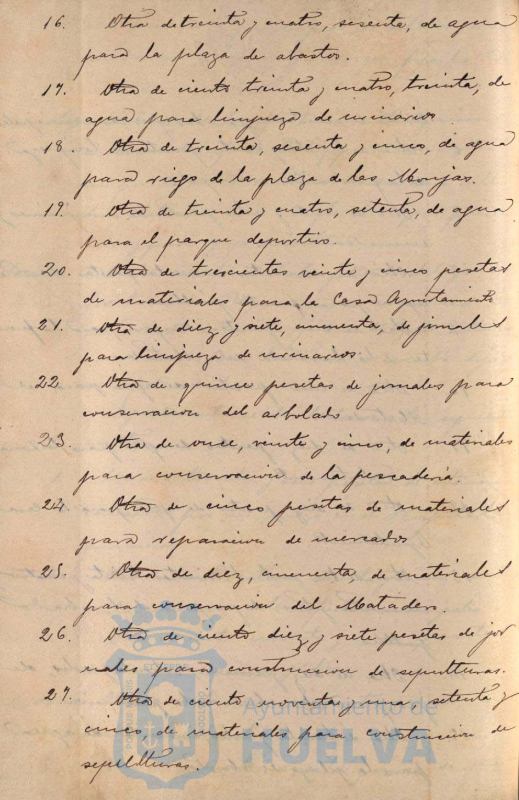 16. Otra de treinta y cuatro, sesenta, de agua
para la plaza de abastos.
17. Otra de ciento treinta y cuatro, treinta, de
agua para limpieza de urinarios
18. Otra de treinta, sesenta y cinco, de agua
para riego de la plaza de las Monjas.
19. Otra de treinta y cuatro, setenta, de agua
para el parque deportivo.
20. Otra de trescientas veinte y cinco pesetas
de materiales para la Casa Ayuntamiento
21. Otra de diez y siete, cincuenta, de jornales
para limpieza de urinarios
22. Otra de quince pesetas de jornales para
conservacion del arbolado
23. Otra de once, veinte y cinco, de materiales
para conservacion de la pescadería.
24. Otra de cinco pesetas de materiales
para reparacion de mercados
25. Otra de diez, cincuenta, de materiales
para conservacion del Matadero.
26. Otra de ciento diez y siete pesetas de jor
nales para construccion de sepulturas.
27. Otra de ciento noventa y una, setenta y
cinco, de materiales para construccion de
sepulturas.
Ayuntamiento de
HUELVA